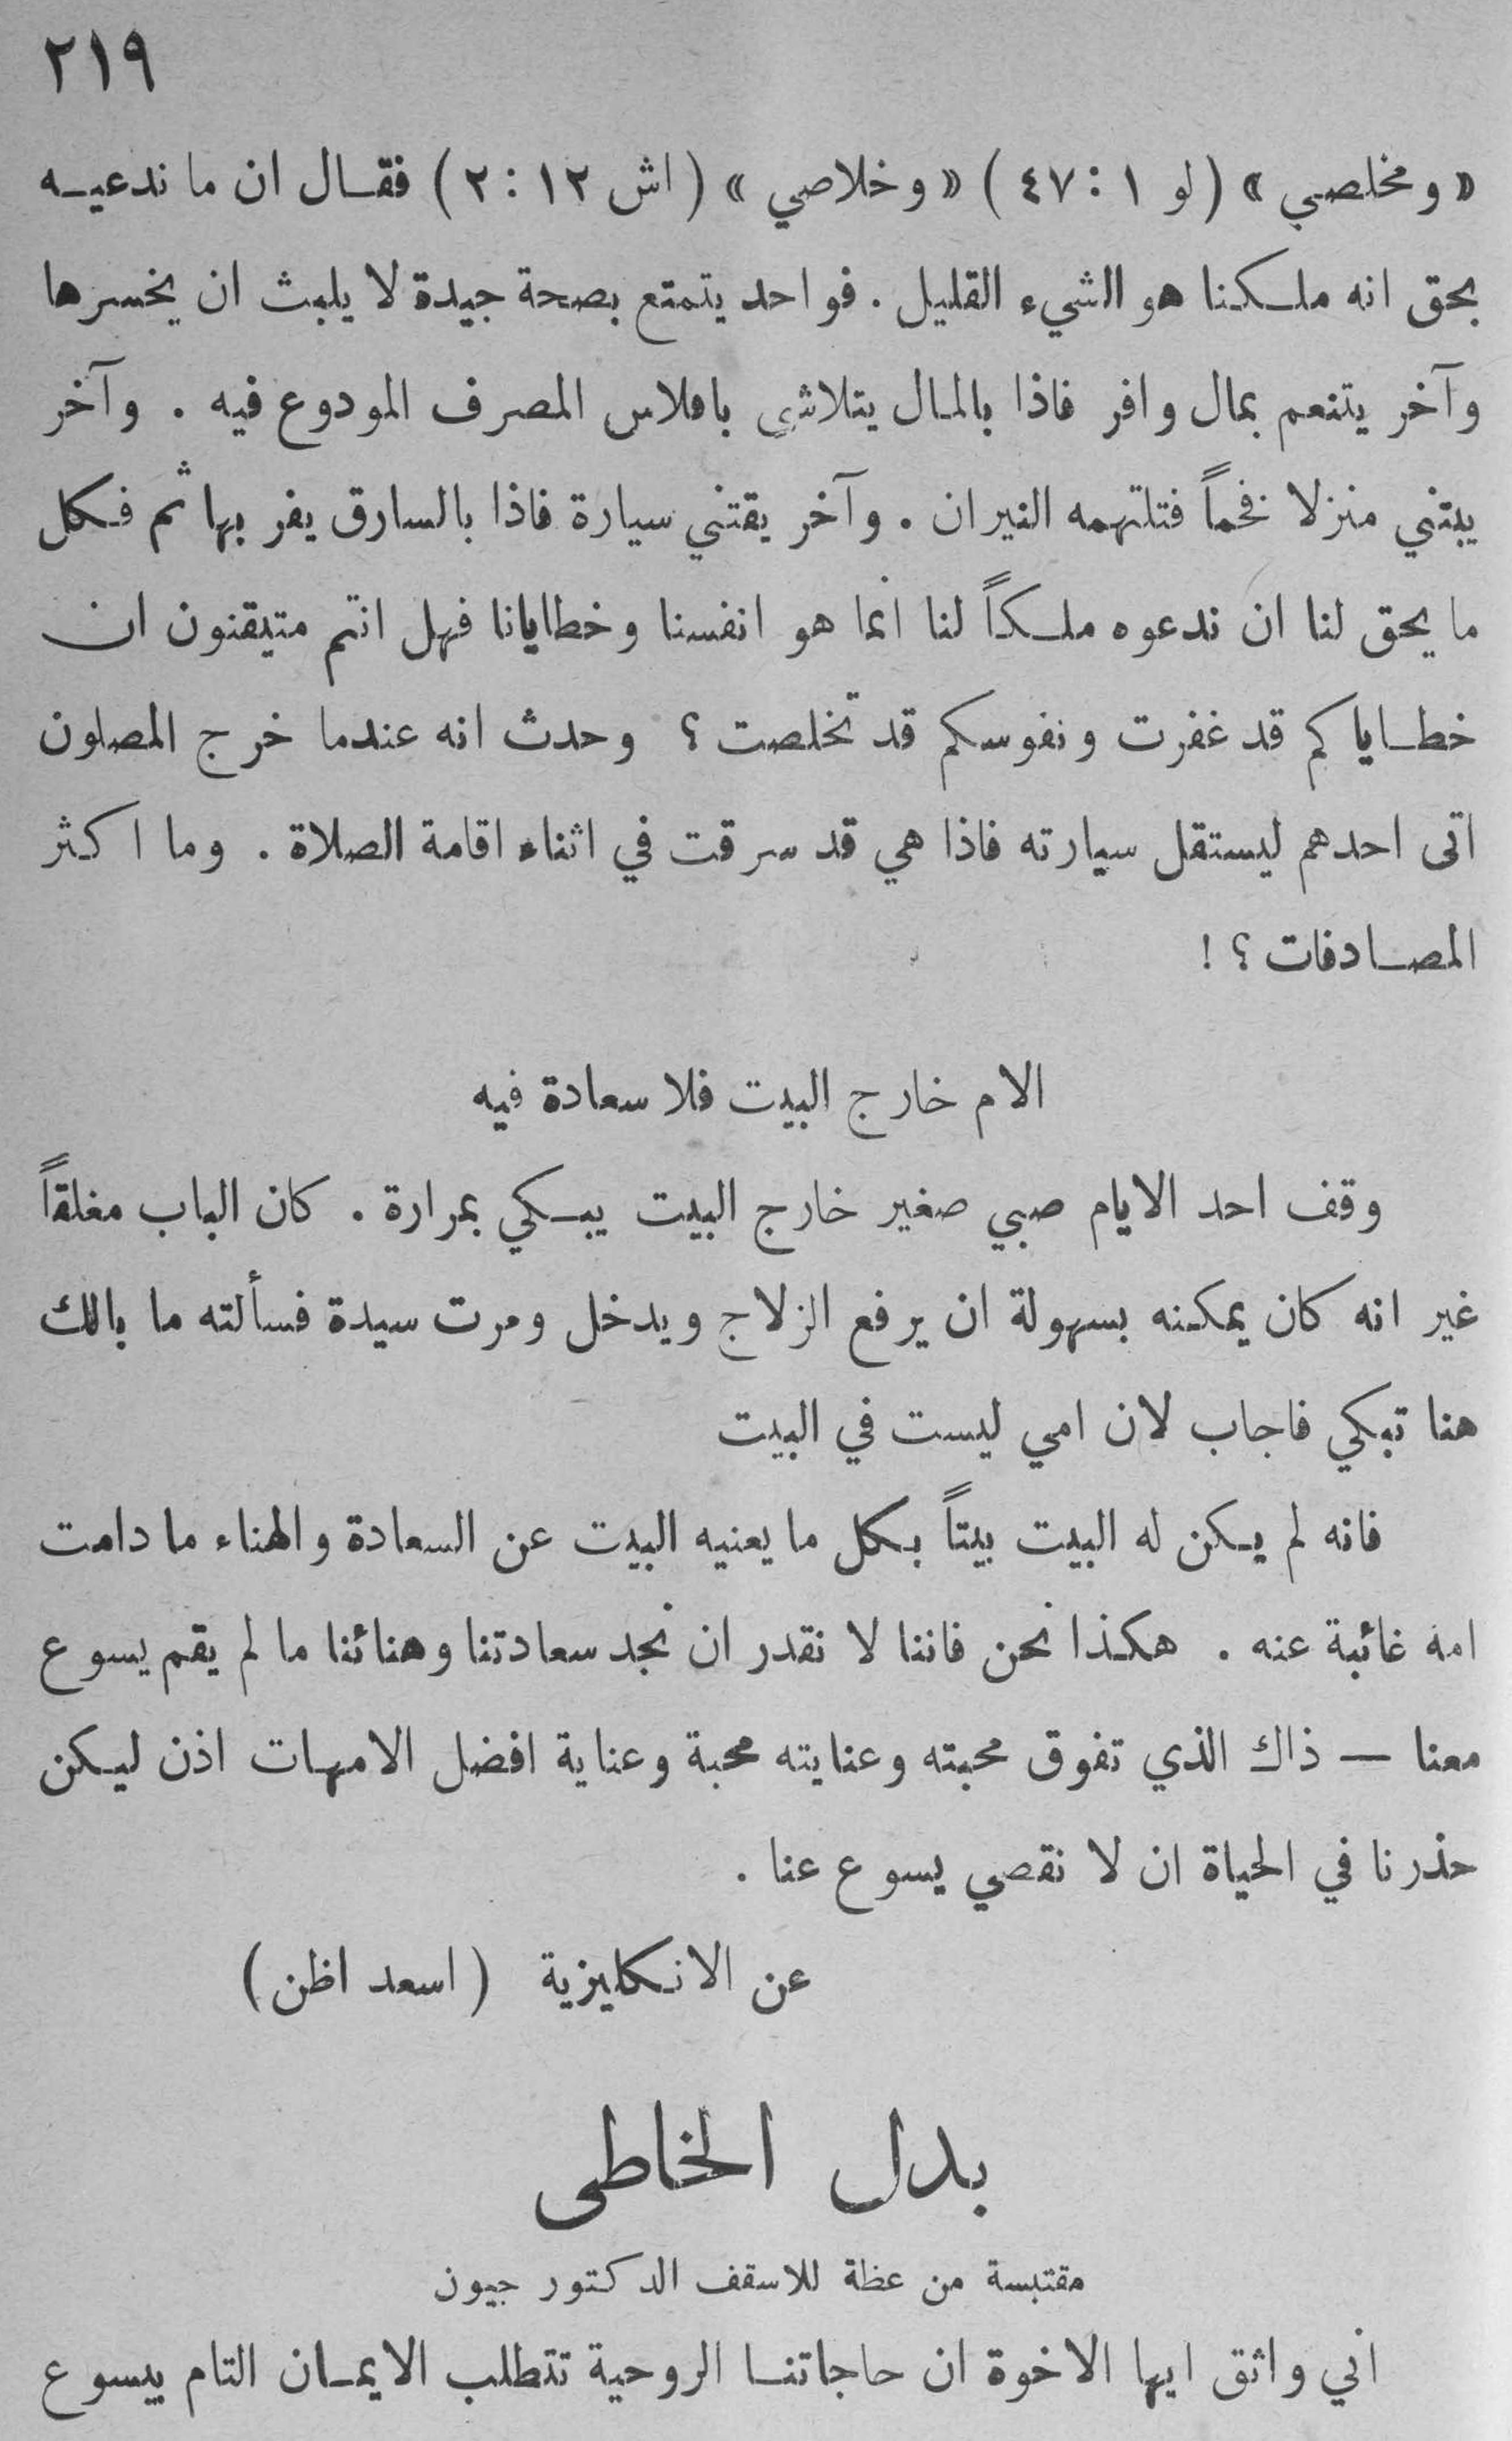 ٢١٩
«ومخلصي» (لو ١ : ٤٧) «وخلاصي» (اش ١٢ : ٢) فقال ان ما ندعيه
بحق انه ملكنا هو الشيء القليل . فواحد يتمتع بصحة جيدة لا يلبث ان يخسرها
وآخر يتنعم بمال وافر فاذا بالمال يتلاشى بافلاس المصرف المودوع فيه . وآخر
يبتني منزلا فخماً فتلتهمه النيران . وآخر يقتني سيارة فاذا بالسارق يفر بها ثم فكل
ما يحق لنا ان ندعوه ملكاً لنا انما هو انفسنا وخطايانا فهل انتم متيقنون ان
خطاياكم قد غفرت ونفوسكم قد تخلصت ؟ وحدث انه عندما خرج المصلون
اتى احدهم ليستقل سيارته فاذا هي قد سرقت في اثناء اقامة الصلاة . وما اكثر
المصادفات ؟ !
الام خارج البيت فلا سعادة فيه
وقف احد الايام صبي صغير خارج البيت يبكي بمرارة . كان الباب مغلقاً
غير انه كان يمكنه بسهولة ان يرفع الزلاج ويدخل ومرت سيدة فسألته ما بالك
هنا تبكي فاجاب لان امي ليست في البيت
فانه لم يكن له البيت بيتاً بكل ما يعنيه البيت عن السعادة والهناء ما دامت
امه غائبة عنه . هكذا نحن فاننا لا نقدر ان نجد سعادتنا وهنائنا ما لم يقم يسوع
معنا — ذاك الذي تفوق محبته وعنايته محبة وعناية افضل الامهات اذن ليكن
حذرنا في الحياة ان لا نقصي يسوع عنا .
عن الانكليزية (اسعد اظن)
بدل الخاطى
مقتبسة من عظة للاسقف الدكتور جيون
اني واثق ايها الاخوة ان حاجاتنا الروحية تتطلب الايمان التام بيسوع